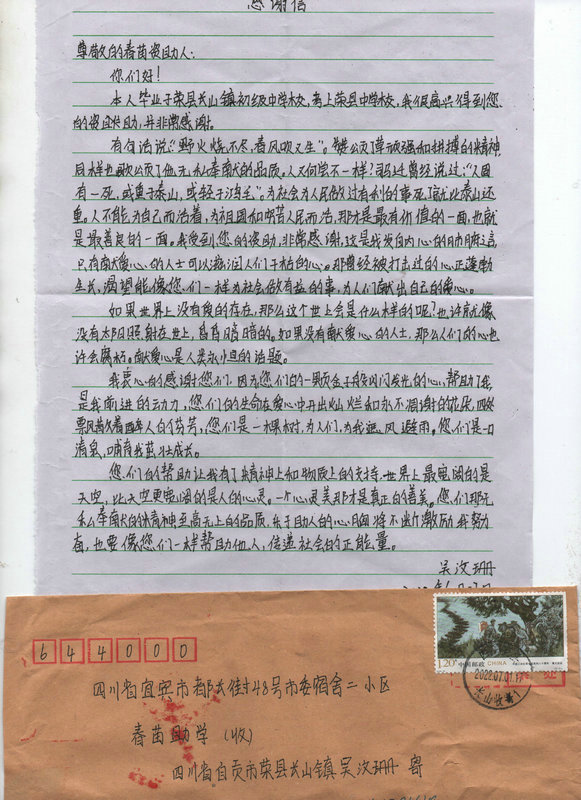 感谢信
尊敬的春苗资助人：
你们好！
本人毕业于荣县长山镇初级中学校，考上荣县中学校，我很高兴得到您
的资助，并非常感谢。
有句话说：“野火烧不尽，春风吹又生”。赞颂了草顽强和拼搏的精神，
同样也歌颂了他无私奉献的品质。人又何尝不一样？司马迁曾经说过：“人固
有一死，或重于泰山，或轻于鸿毛”。为社会为人民做过有利的事死了就比泰山还
重。人不能为自己而活着，为祖国和那苦人民而活，那才是最有价值的一面，也就
是最善良的一面。我受到您的资助，非常感谢，这是我发自内心的肺腑之言，
只有献爱心的人士可以滋润人们干枯的心。那曾经被打击过的心正蓬勃
生长，渴望能像您们一样为社会做有益的事，为人们献出自己的爱心。
如果世界上没有爱的存在，那么这个世上会是什么样的呢？也许就像
没有太阳照射在世上，昏昏暗暗的。如果没有献爱心的人士，那么人们的心也
许会腐朽。献爱心是人类永恒的话题。
我衷心的感谢您们，因为您们的一颗金子般闪闪发光的心，帮助了我，
是我前进的动力，您们的生命在爱心中开出灿烂和永不凋谢的花朵，四处
飘散着醉人的芬芳，您们是一棵树，为人们，为我遮风避雨。您们是一口
清泉，哺育我茁壮成长。
您们的帮助让我有了精神上和物质上的支持。世界上最宽阔的是
天空，比天空更宽阔的是人的心灵。一个心灵美那才是真正的善美。您们那无
私奉献的精神至高无上的品质，乐于助人的心胸将不断激励我努力
着，也要像您们一样帮助他人，传递社会的正能量。
吴汶珊
644000
四川省宜宾市都长街48号市委宿舍二小区
春苗助学（收）
四川省自贡市荣县长山镇 吴汶珊 寄
1.20元
中国邮政 CHINA
2022.07.01.17